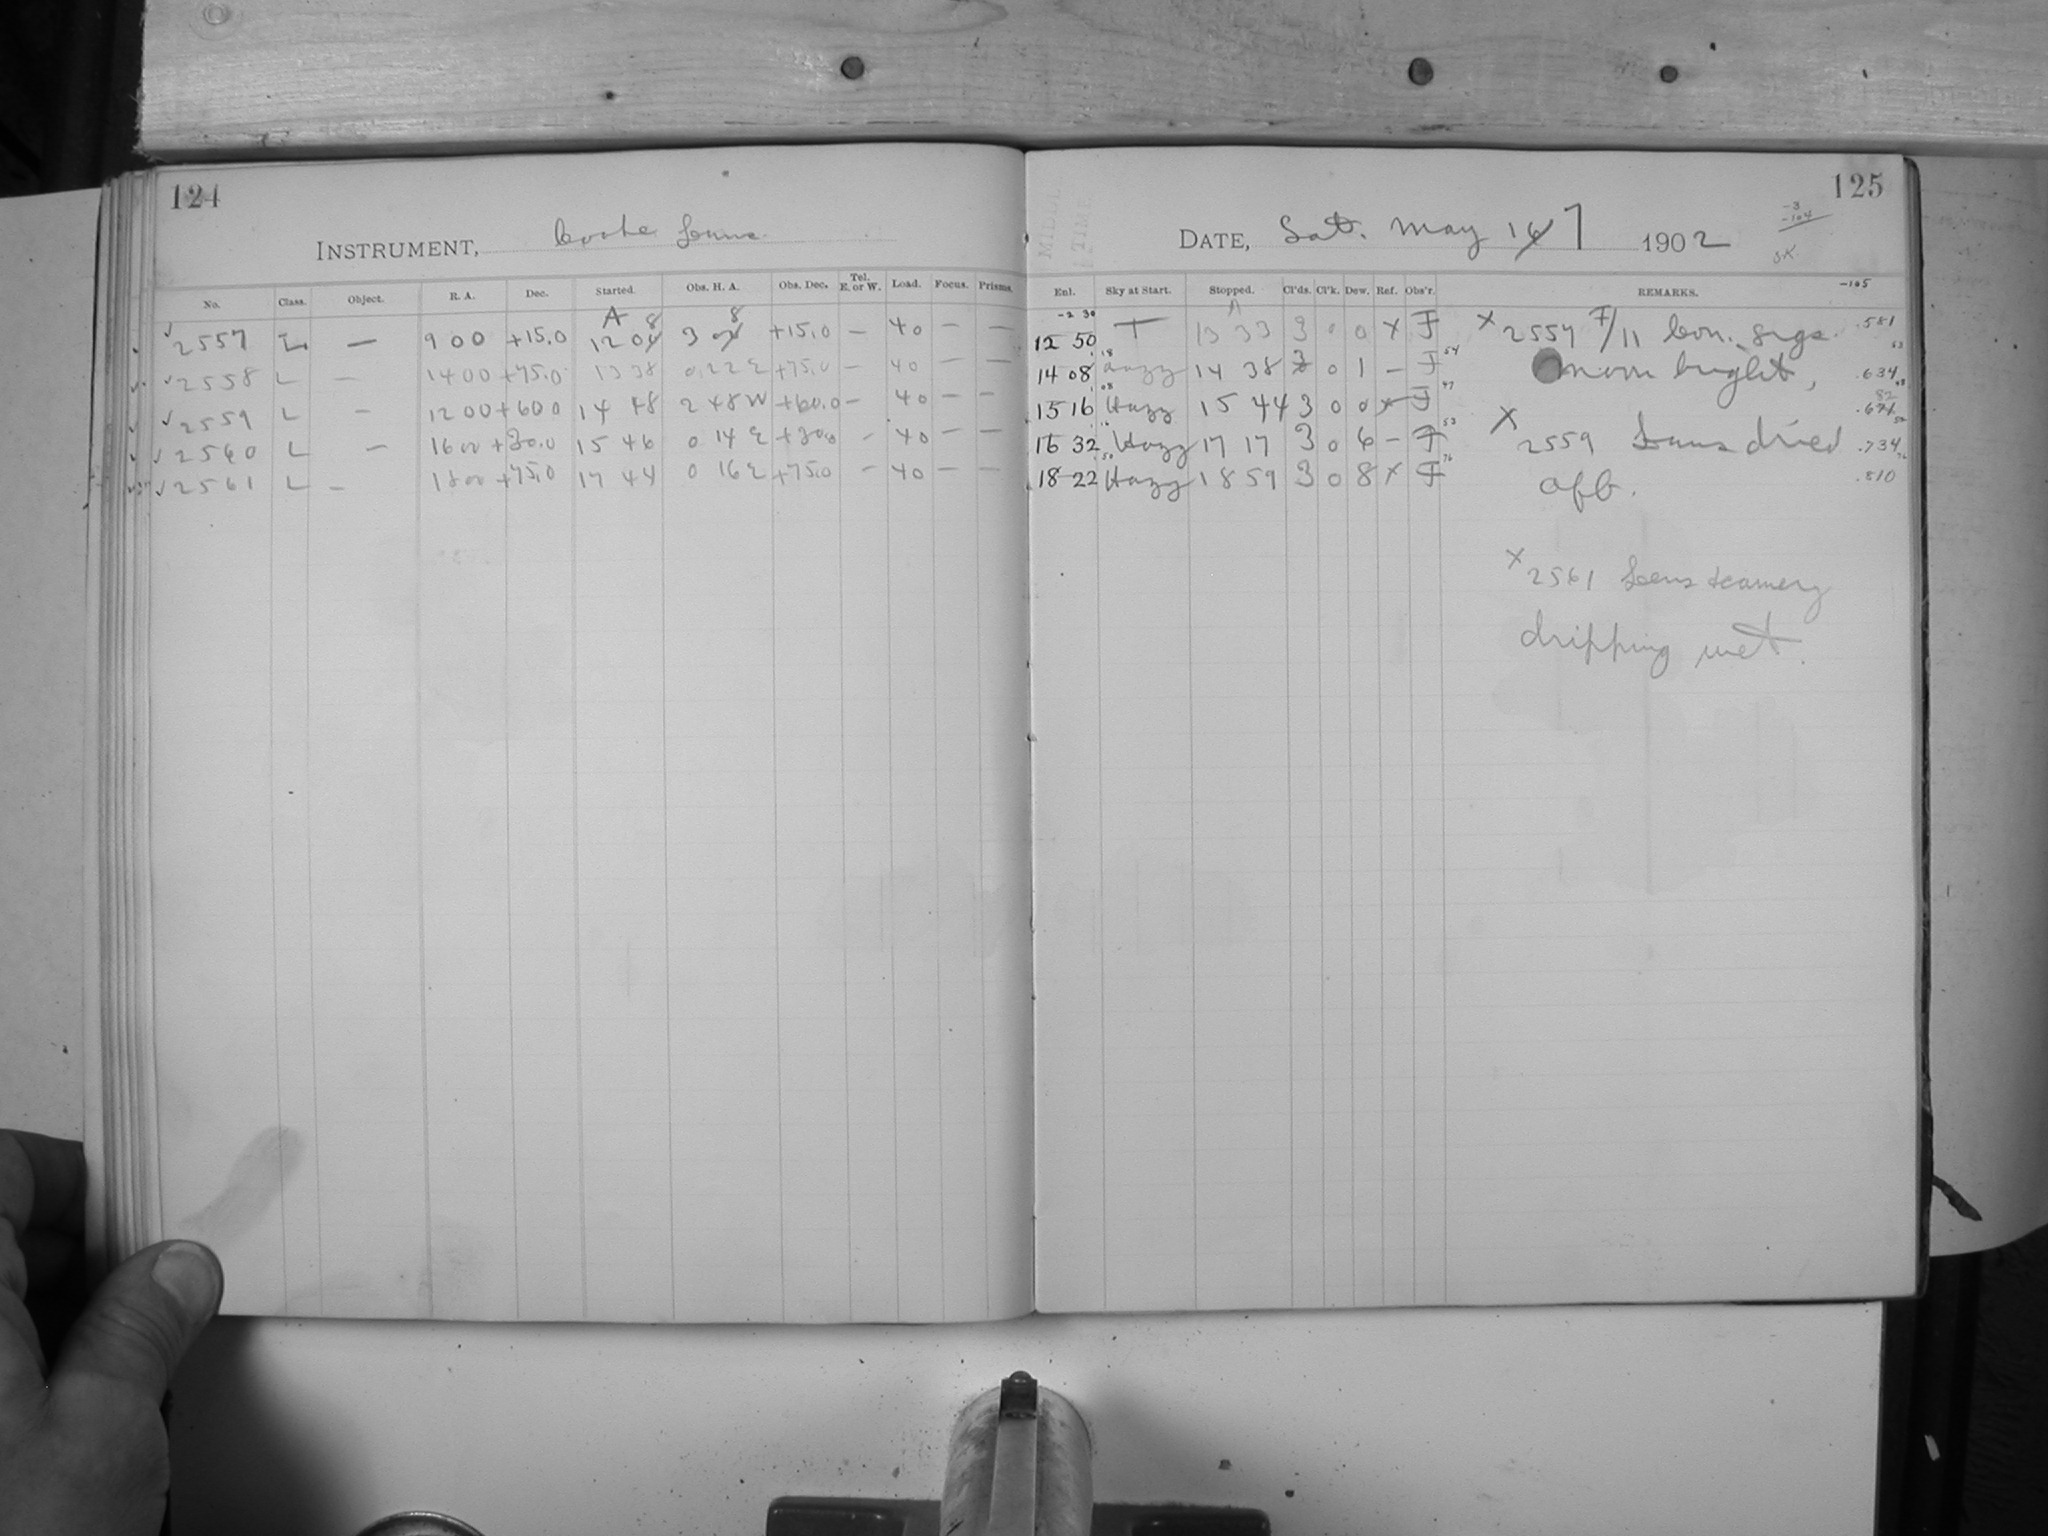 124
INSTRUMENT, Cooke Lens.
No. Class. Object. R. A. Dec. Started. Obs. H. A. Obs. Dec. Tel. E. or W. Load. Focus. Prisms.
A 8 8
✓ 2557 L — 9 00 +15.0 12 04 3 04 +15.0 — 40 — —
✓ 2558 L — 14 00 +75.0 13 38 0 22 E +75.0 — 40 — —
✓ 2559 L — 12 00 +60.0 14 48 2 48 W +60.0 — 40 — —
✓ 2560 L — 16 00 +30.0 15 46 0 14 E +30.0 — 40 — —
✓ 2561 L — 18 00 +75.0 17 44 0 16 E +75.0 — 40 — —
125
DATE, Sat. May 16 7 1902
-3
-104
Enl. Sky at Start. Stopped. Cl'ds. Cl'k. Dew. Ref. Obs'r. REMARKS. -105
-2 30 A
12 50 T 13 33 3 0 0 X F
14 08 Hazy 14 38 3 0 1 — F
15 16 Hazy 15 44 3 0 0 X F
16 32 Hazy 17 17 3 0 6 — F
18 22 Hazy 18 59 3 0 8 X F
X 2557 F/11 Con. .581
moon bright, .634
X 2559 Lens dried .734
off. .810
X 2561 Lens &
dripping wet.